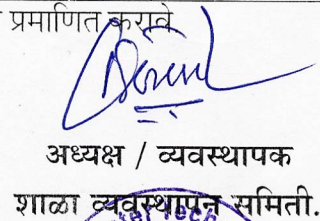 प्रमाणित करावे
अध्यक्ष / व्यवस्थापक
शाळा व्यवस्थापन समिती.